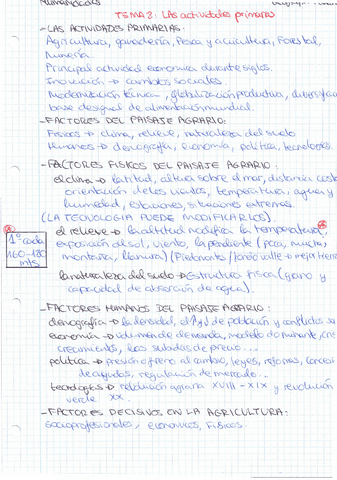 Humanidades
TEMA 3: Las actividades primarias
-LAS ACTIVIDADES PRIMARIAS:
Agricultura, ganadería, Pesca y acuicultura, Forestal,
Minería.
Principal actividad economica durante siglos.
Innovación → cambios sociales
Modernización técnica, globalización productiva, diversificac
base desigual de alimentación mundial.
-FACTORES DEL PAISAJE AGRARIO:
Físicos → clima, relieve, naturaleza del suelo
Humanos → demografía, economía, política, tecnologías.
-FACTORES FISICOS DEL PAISAJE AGRARIO:
el clima → latitud, altura sobre el mar, distancia costa
orientación de los vientos, temperatura, agua y
humedad, estaciones, situaciones extremas.
(LA TECNOLOGIA PUEDE MODIFICARLOS).
el relieve → la altitud modifica la temperatura,
1º cada
160-180
mts
exposición al sol, viento, la pendiente (poca, mucha,
montaña, llanura) (Piedemonte / fondo valle → mejor tierra
la naturaleza del suelo → Estructura fisica (grano y
capacidad de absorción de agua).
-FACTORES HUMANOS DEL PAISAJE AGRARIO:
demografía → la densidad, el de población y conflictos
economía → volumen de demanda, modelo dominante,
crecimientos, subidas de precio...
política → presión o freno al cambio, leyes, reformas,
de ayudas, regulación de mercado...
tecnologías → revolución agraria XVIII-XIX y revolución
verde XX.
-FACTORES DECISIVOS EN LA AGRICULTURA:
Socioprofesionales, economicos, Fisicos.